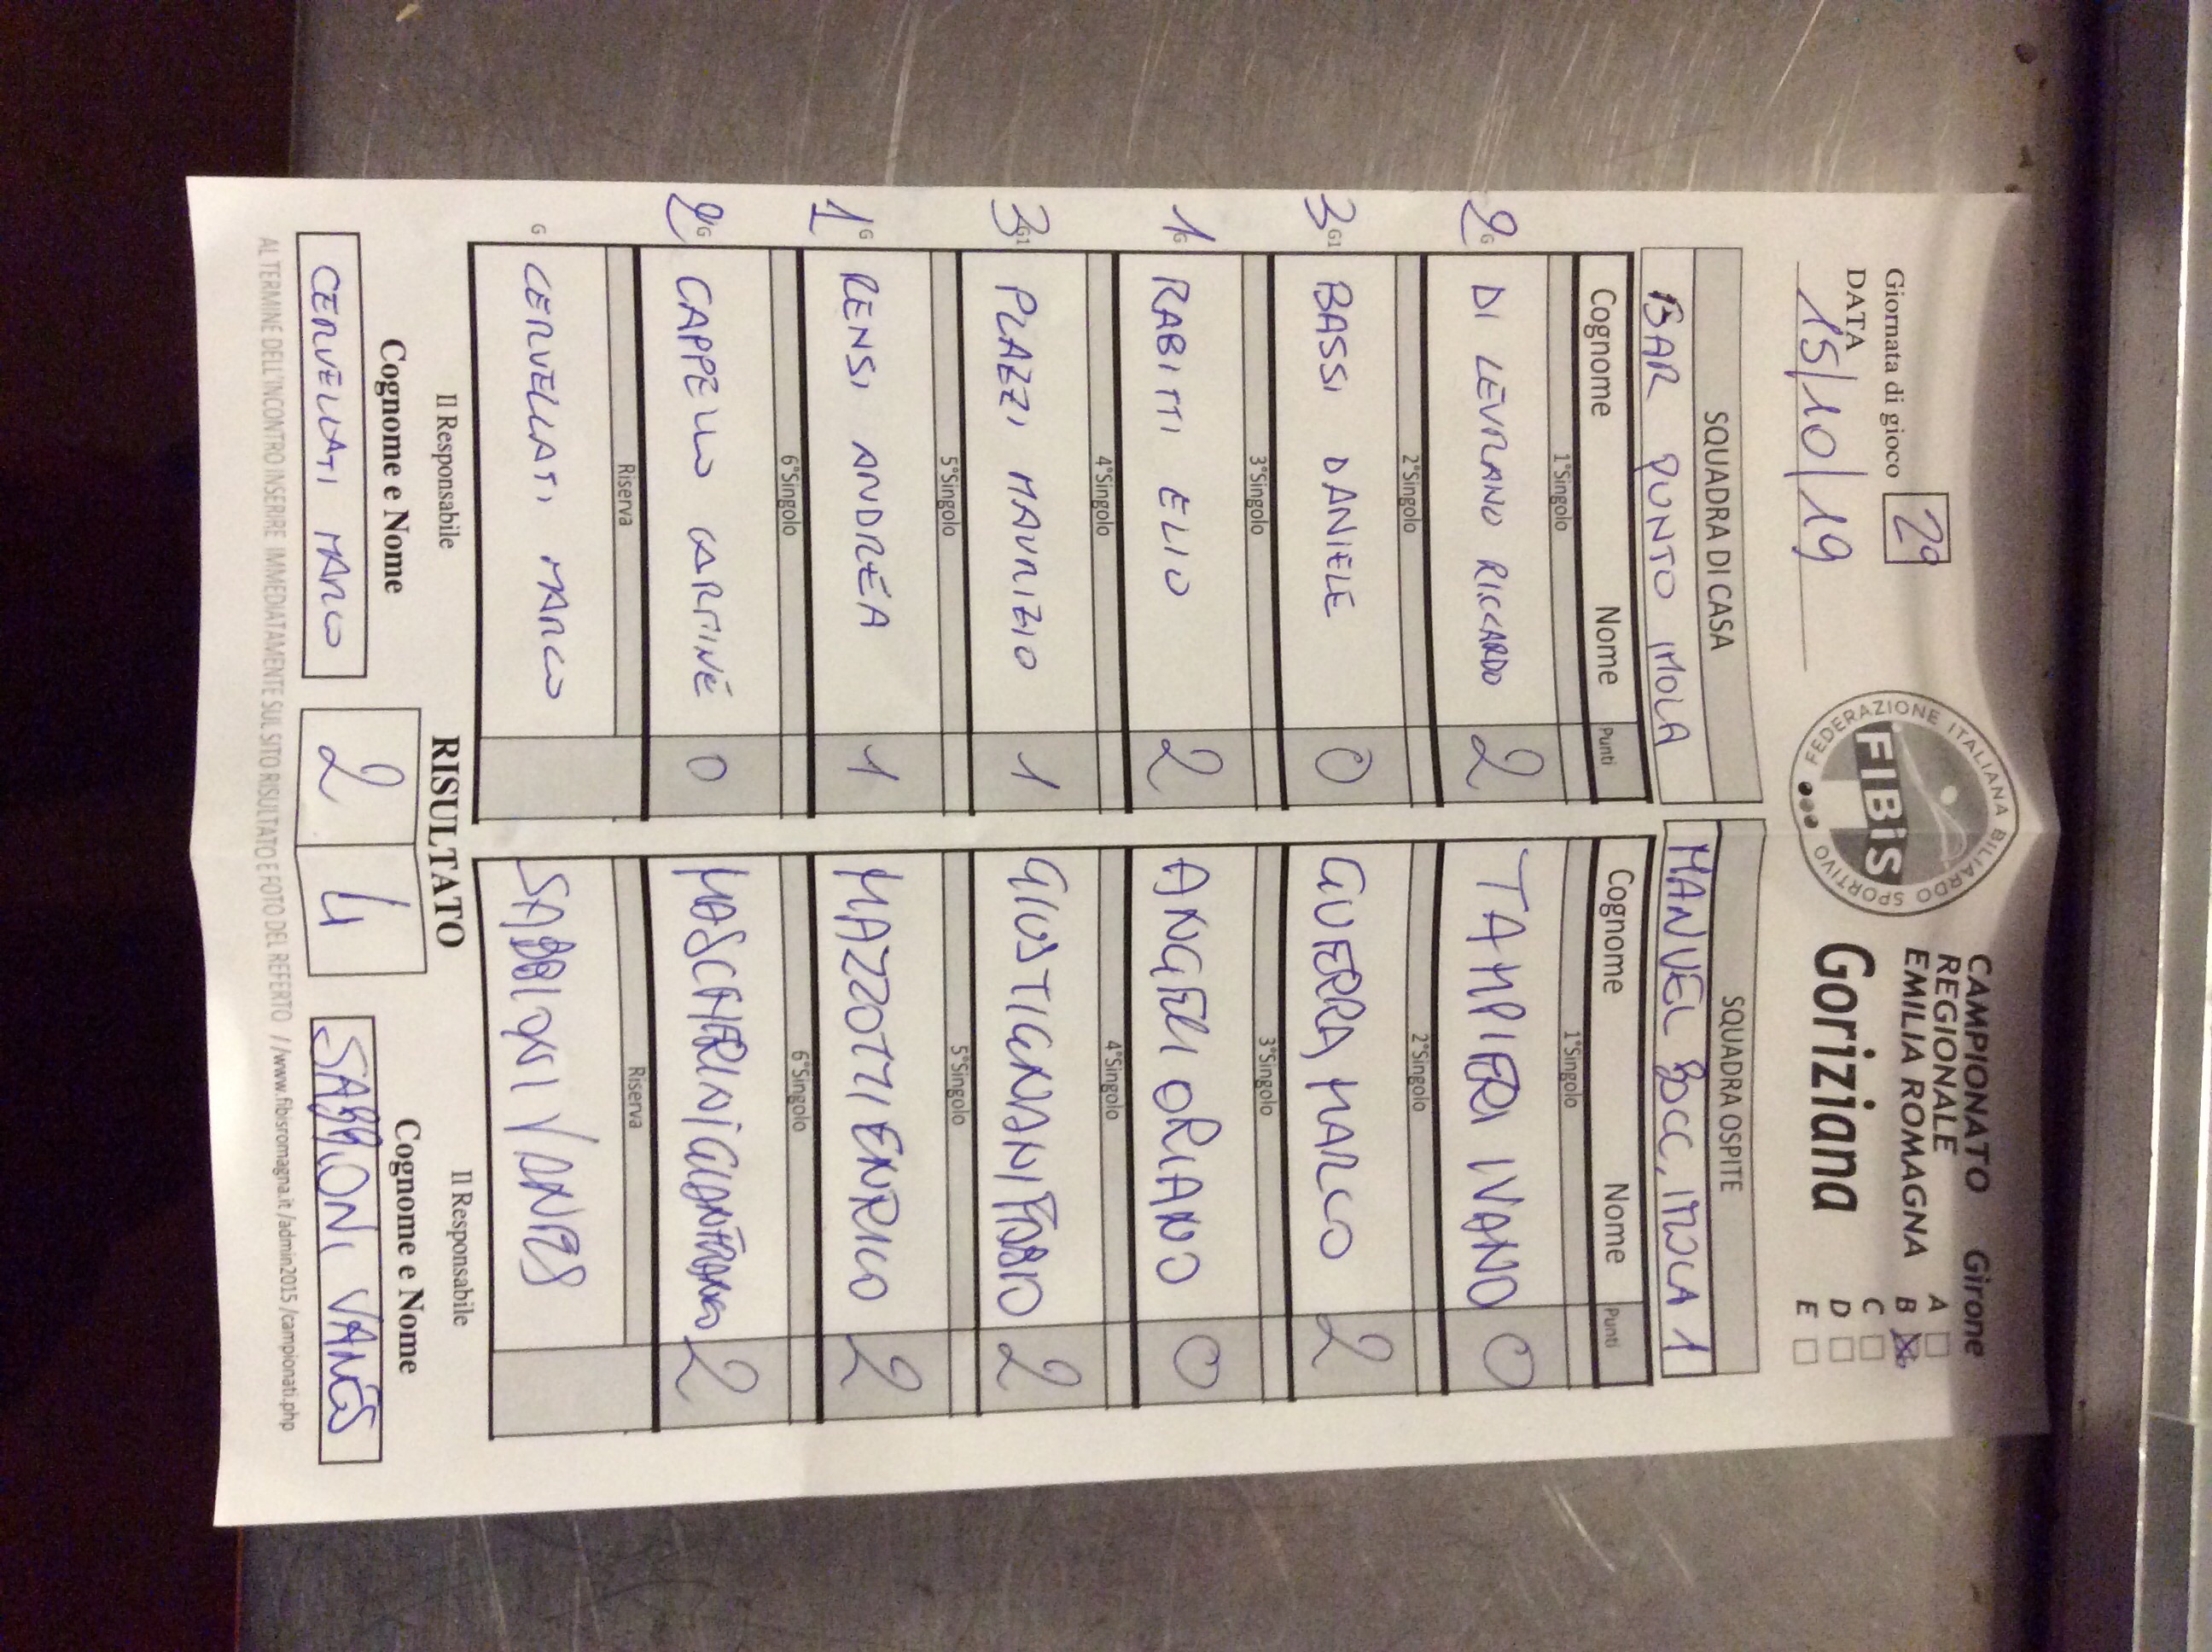 Giornata di gioco 2ª
DATA
15/10/19
FEDERAZIONE ITALIANA BILIARDO SPORTIVO
FIBiS
CAMPIONATO
REGIONALE
EMILIA ROMAGNA
Goriziana
Girone
A
B X
C
D
E
SQUADRA DI CASA SQUADRA OSPITE
BAR PUNTO IMOLA MANUEL BOCC. IMOLA 1
Cognome Nome Punti Cognome Nome Punti
1°Singolo 1°Singolo
2 G DI LEVRANO RICCARDO 2 TAMPIERI IVANO 0
2°Singolo 2°Singolo
3 G1 BASSI DANIELE 0 GUERRA MARCO 2
3°Singolo 3°Singolo
1 G RABITTI ELIO 2 ANGELI ORIANO 0
4°Singolo 4°Singolo
3 G1 PLAZZI MAURIZIO 1 GIUSTIGNANI FABIO 2
5°Singolo 5°Singolo
1 G RENSI ANDREA 1 MAZZOTTI ENRICO 2
6°Singolo 6°Singolo
2 G CAPPELLO CARMINE 0 MASCHERINI GIANFRANCO 2
Riserva Riserva
G CERVELLATI MARCO SABBIONI VANES
Il Responsabile RISULTATO Il Responsabile
Cognome e Nome 2 4 Cognome e Nome
CERVELLATI MARCO SABBIONI VANES
AL TERMINE DELL'INCONTRO INSERIRE IMMEDIATAMENTE SUL SITO RISULTATO E FOTO DEL REFERTO //www.fibisromagna.it/admin2015/campionati.php